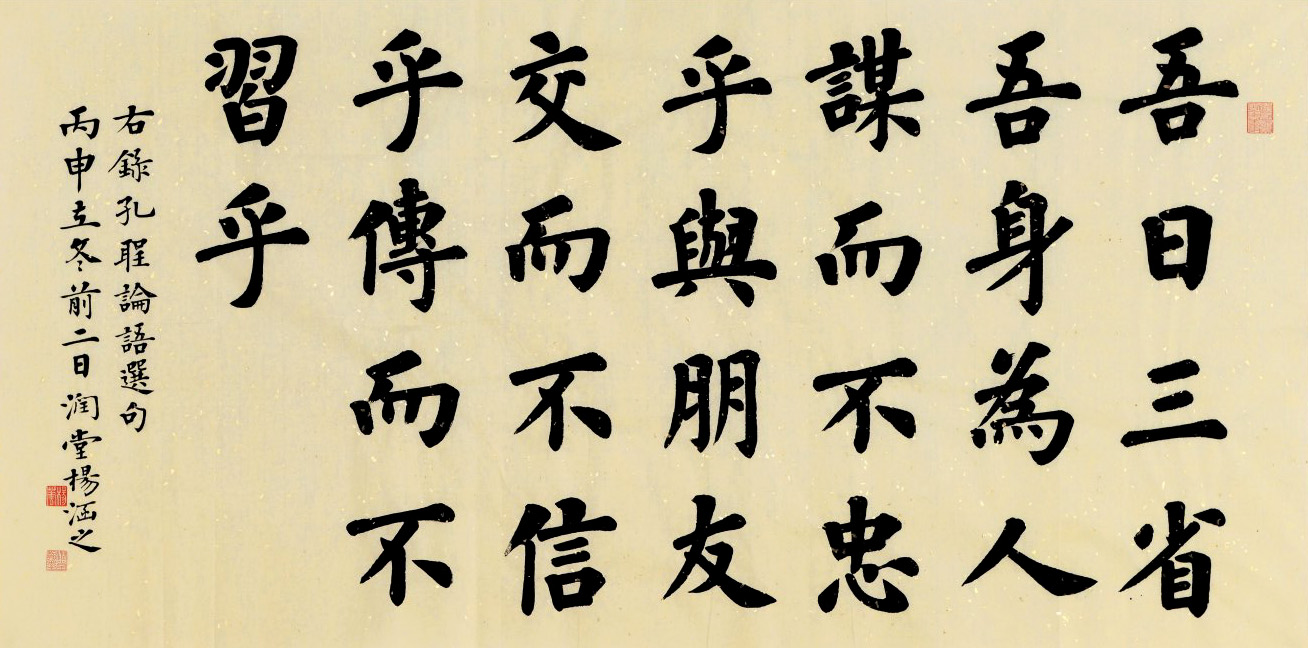 吾日三省
吾身為人
謀而不忠
乎與朋友
交而不信
乎傳而不
習乎
右錄孔聖論語選句
丙申立冬前二日潤堂楊涵之